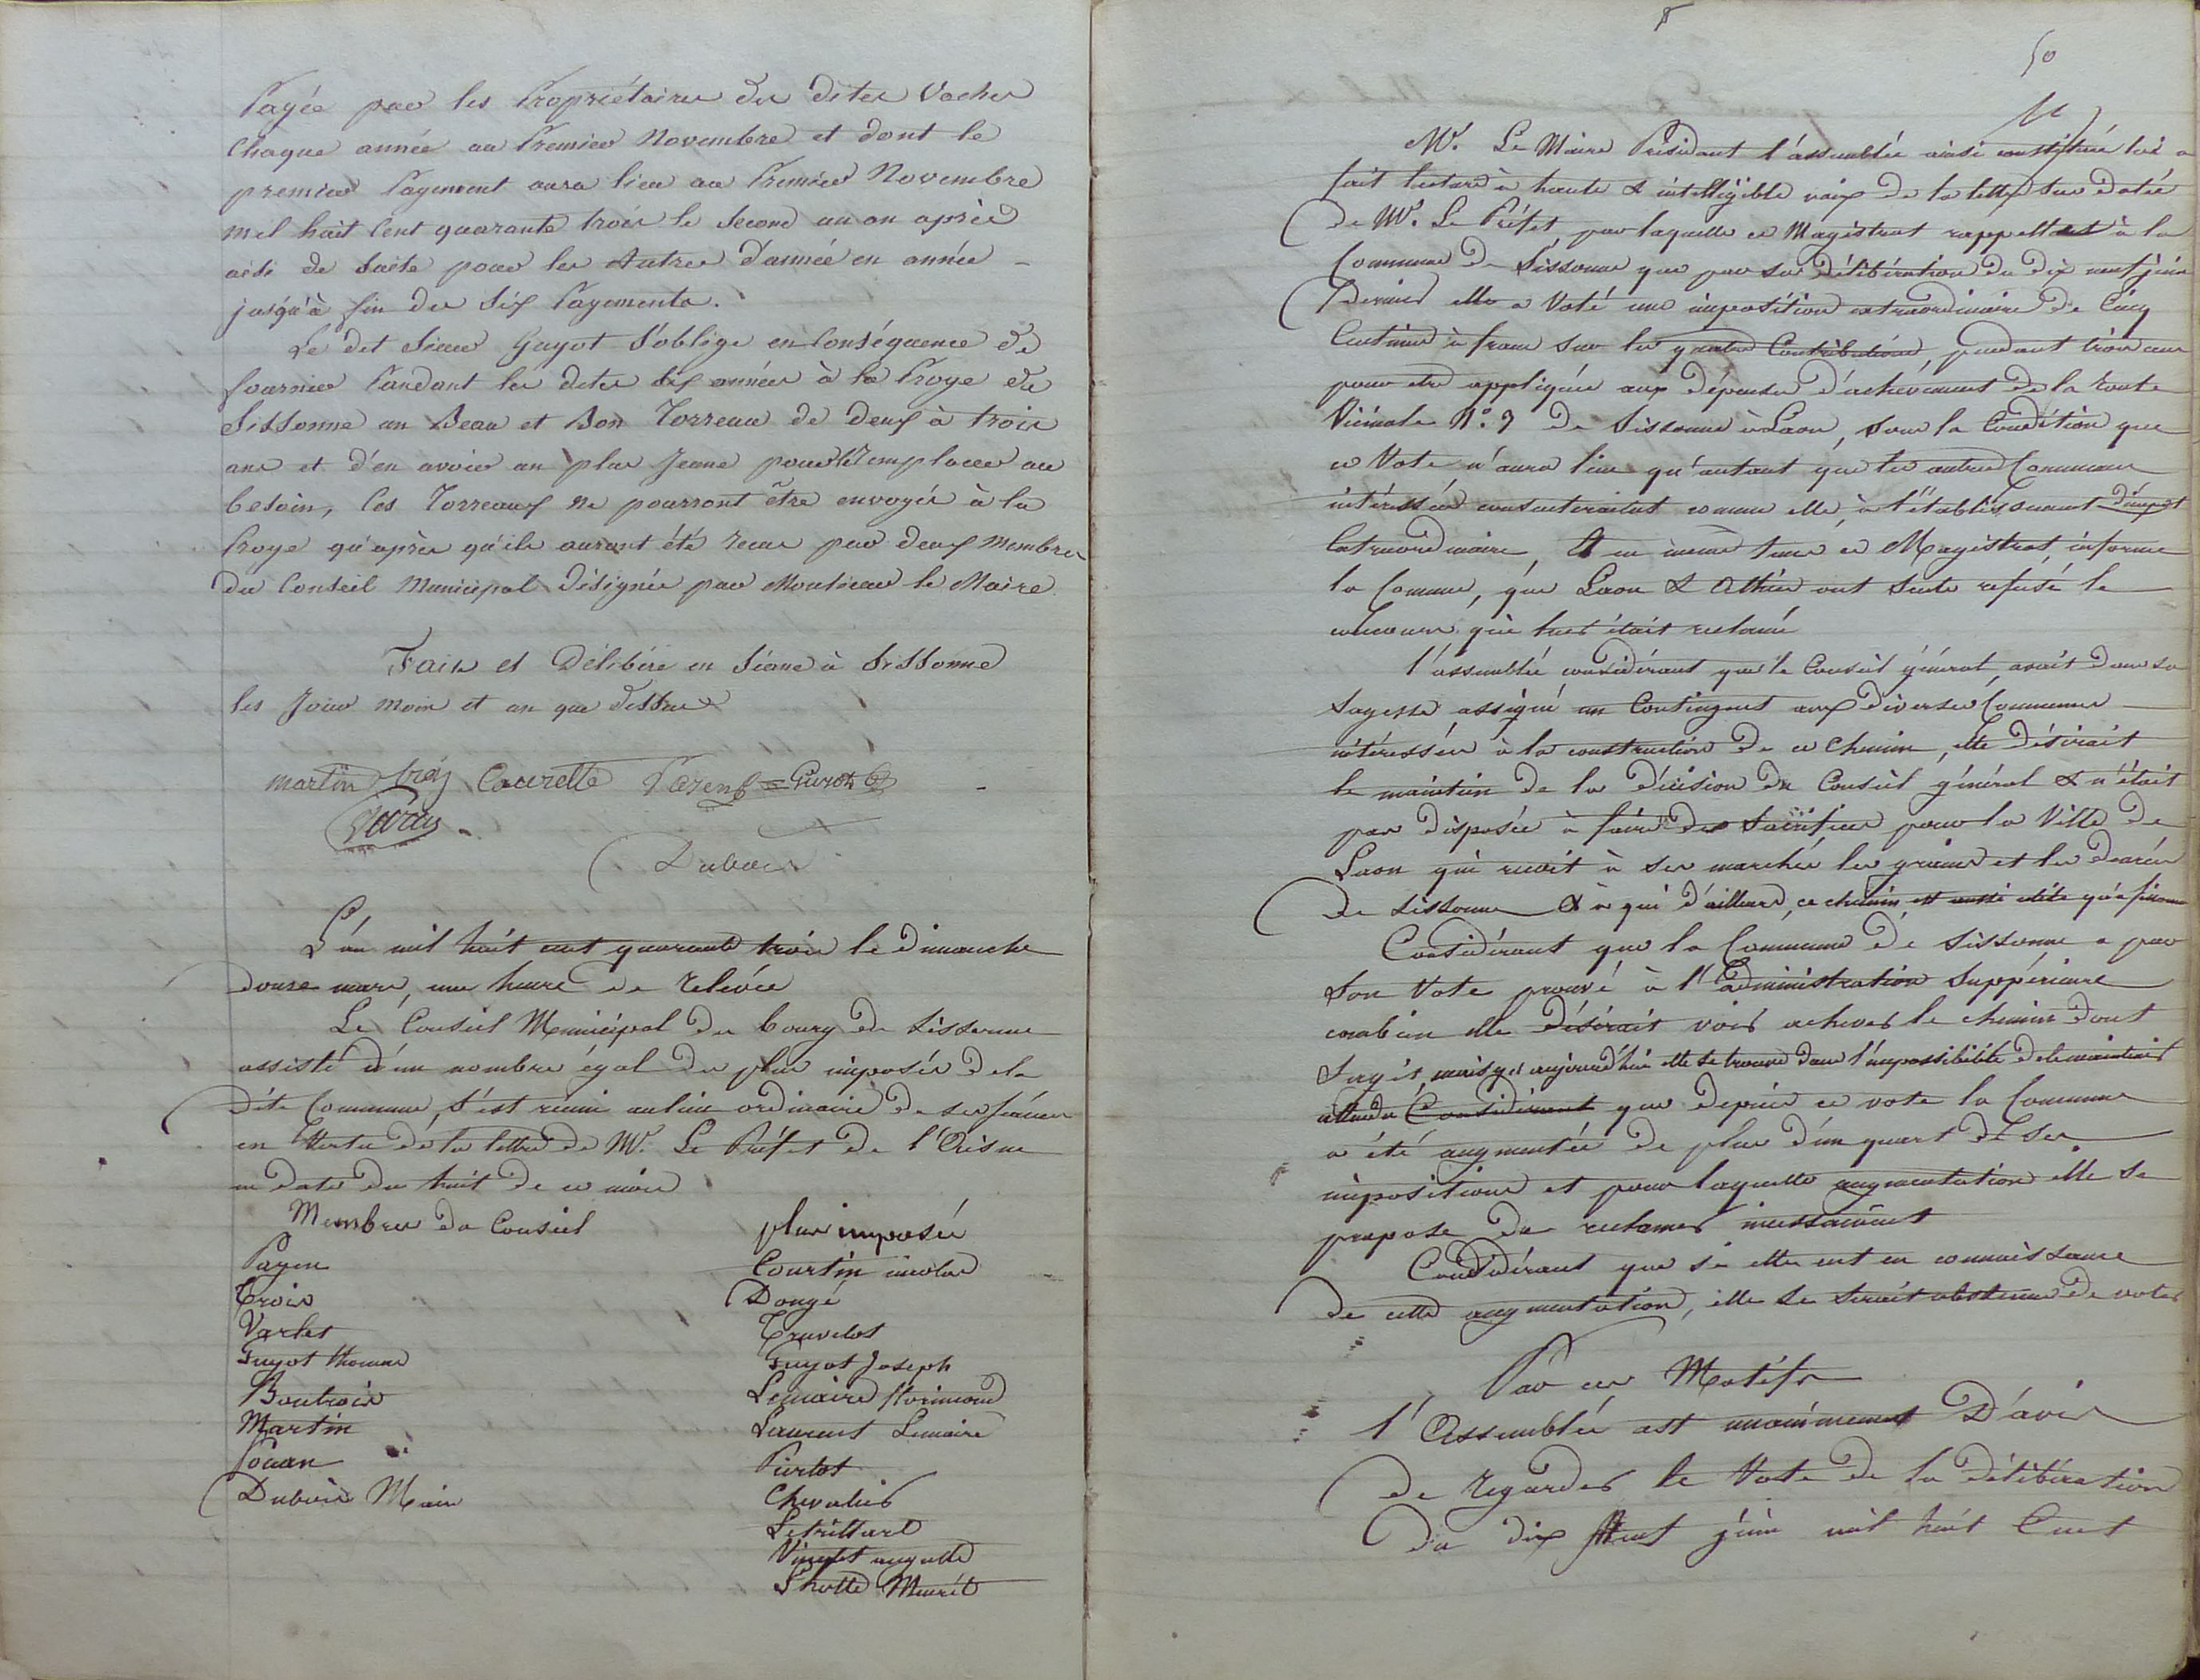 Payée par les Propriétaires des dites Vaches
Chaque année au Premier Novembre et dont le
premier Payement aura lieu au Premier Novembre
mil huit Cent quarante trois le Second un an après
aisi de Suite pour les Autres d'année en année
jusqu'à fin des Six Payements.
Le dit Sieur Guyot S'oblige en Conséquence de
fournier Pandant les dites Six années à la Proye de
Sissonne un Beau et Bon Torreau de deux à trois
ans et d'en avoir un plus Jeune pour le Remplacer au
besoin, Ces Torreaux ne pourront être envoyés à la
Proye qu'après qu'ils auront été recus par deux Membres
du Conseil Municipal désignée par Monsieur le Maire
Fait et Délibéré en Séance à Sissonne
les Jour mois et an que dessus
Martin troy Courette Payen Guyot
Dubois
L'an mil huit cent quarante trois le dimanche
douze mars, une heure de Relevée
Le Conseil Municipal du bourg de Sissonne
assisté d'un nombre égal de plus imposés de la
dite Commune, S'est reuni au lieu ordinaire de ses séances
en Vertu de la lettre de Mr. Le Préfet de l'Aisne
en date du huit de ce mois
Membres du Conseil plus imposés
Payen Courtin nicolas
Trois Dougé
Varlet Truvelot
Guyot thomas Guyot Joseph
Boutrois Lemaire florimond
Martin Laurent Lemaire
Jouan Pierlot
Dubois Maire Chevalier
Letrillart
Vinglet auguste
50
Mr. Le Maire Président l'assemblée ainsi constituée lui a
fait lecture à haute & intelligible voix de la lettre sus datée
de Mr. Le Préfet par laquelle ce Magistrat rappellant à la
Commune de Sissonne que par sa délibération du dix neuf juin
dernier elle a Voté une imposition extraordinaire de Cinq
Centimes à franc sur les quatre Contributions, pendant trois ans
pour etre appliquée aux dépenses d'achévement de la route
Vicinale N°. 9 de Sissonne à Laon, sous la Condition que
ce Vote n'aura lieu qu'autant que les autres Communes
intéressées consentiraient comme elle, à l'établissement d'impot
Extraordinaire, & en même tems ce Magistrat informe
la Commune, que Laon & Athies ont seules refusé le
concours qui leur était reclamé
l'assemblée considérant que le Conseil général, avait dans sa
Sagesse assigné un Contingent aux diverses Communes
intéressées à la construction de ce Chemin, elle désirait
le maintien de la décision du Conseil général & n'était
pas disposée à faire des sacrifices pour la Ville de
Laon qui reçoit à ses marchés les grains et les denrées
de Sissonne & à qui d'ailleurs, ce chemin, est aussi utile qu'à Sissonne
Considérant que la Commune de Sissonne a par
Son Vote prouvé à l'administration Suppérieure
combien elle désirait voir achever le chemin dont
Sagit, mais qu'aujourd'hui elle se trouve dans l'impossibilité de le maintenir
attendu Considérant que depuis ce vote la Commune
a été augmentée de plus d'un quart de ses
impositions et pour laquelle augmentation elle se
propose de reclamer incessament
Considérant que si elle eut eu connaissance
de cette augmentation, elle se serait abstenue de voter
Par ces Motifs
l'Assemblée est unanimement D'avis
de regarder le Vote de la délibération
du dix Neuf juin mil huit Cent